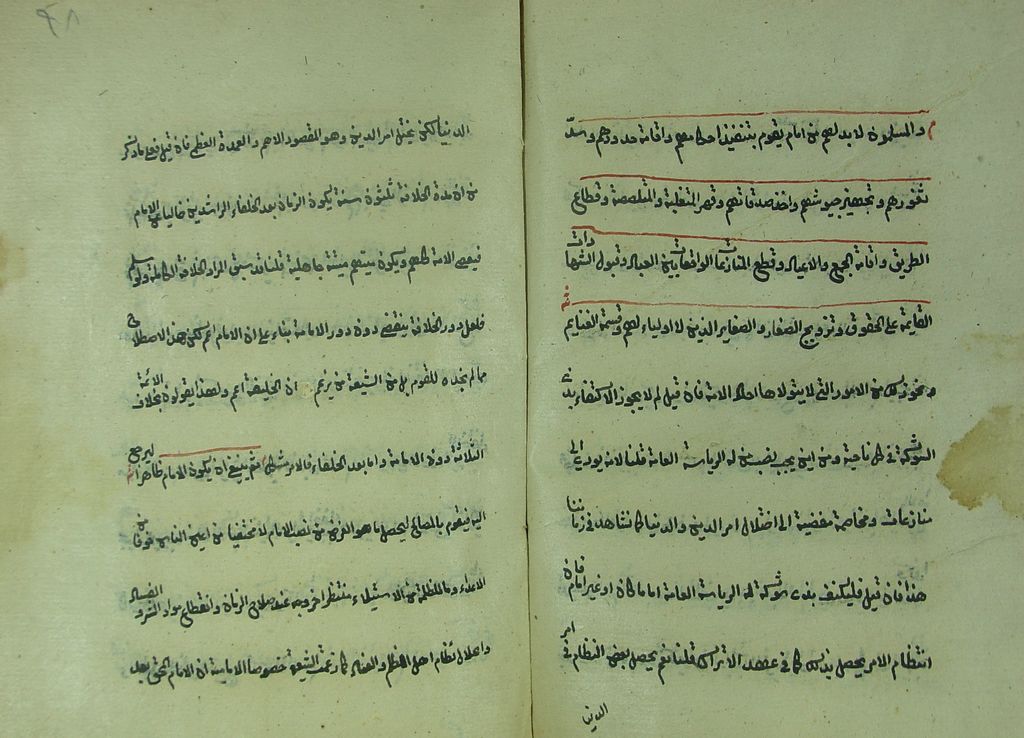 م والمسلمون لا بد لهم من امام يقوم بتنفيذ احكامهم واقامة حدودهم وسدّ
ثغورهم وتجهيز جيوشهم واخذ صدقاتهم وقهر المتغلبة والمتلصصة وقطاع
الطريق واقامة الجمع والاعياد وقطع المنازعات الواقعة بين العباد وقبول الشهادات
القائمة على الحقوق وتزويج الصغار والصغاير الذين لا اولياء لهم وقسمة الغنايم ش
ونحو ذلك من الامور التى لا يتولاها احاد الامة فان قيل لم لا يجوز الاكتفاء بذى
الشوكة فى كل ناحية ومن اين يجب نصب من له الرياسة العامة قلنا لانه يودى الى
منازعات ومخاصمة مفضية الى اختلال امر الدين والدنيا كما نشاهد فى زماننا
هذا فان قيل فليكتف بذى شوكة له الرياسة العامة اماما كان او غير امام فان
انتظام الامر يحصل بذلك كما فى عهد الاتراك قلنا نعم يحصل بعض النظام فى امر
الدنيا
٩٨
الدنيا لكن يختل امر الدين وهو المقصود الاهم والعمدة العظمى فان قيل فعلى ما ذكر
من ان مدة الخلافة ثلثون سنة يكون الزمان بعد الخلفاء الراشدين خاليا عن الامام
فيعصى الامة كلهم ويكون ميتتهم ميتة جاهلية قلنا قد سبق المراد الخلافة الكاملة ولو سلم
فلعل دور الخلافة ينقضى دون دور الامامة بناء على ان الامام اعم لكن هذا الاصطلاح
مما لم نجده للقوم بل من الشيعة من يزعم ان الخليفة اعم ولهذا يقولون بخلافة الائمة
الثلاثة دون الامامة واما بعد الخلفاء فالامر مشكل م ثم ينبغى ان يكون الامام ظاهرا ش ليرجع
اليه فيقوم بالمصالح ليحصل ما هو الغرض من نصب الامام لا مختفيا من اعين الناس خوفا من
الاعداء وما للظلمة من الاستيلاء منتظرا خروجه عند صلاح الزمان وانقطاع مواد الشر والفساد
وانحلال نظام اهل الظلم والعناد كما زعمت الشيعة خصوصا الامامية ان الامام الحق بعد